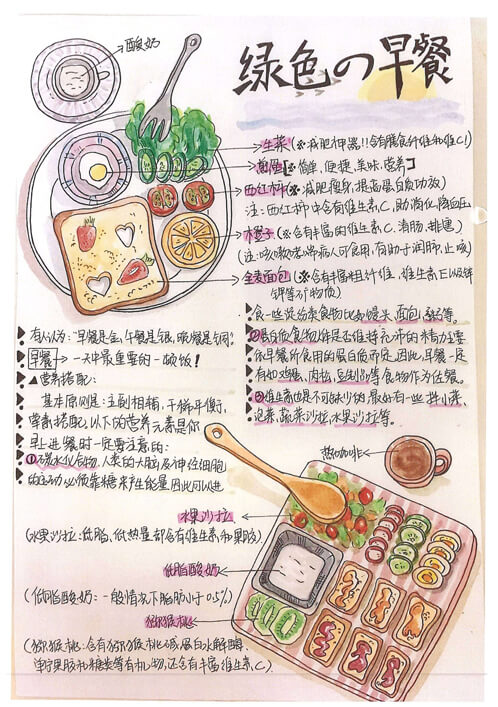 绿色の早餐
酸奶
生菜(※减肥神器!!含有膳食纤维和维C!)
[※简单,便捷,美味,营养]
西红柿(※减肥瘦身,提高蛋白质功放)
注:西红柿中含有维生素C,助消化,降血压
橙子(※含有丰富的维生素C,清肠,排毒)
(注:咳嗽哮喘病人可食用,有助于润肺,止咳)
全麦面包(※含有丰富粗纤维,维生素E以及锌
钾等矿物质)
有人认为:"早餐是金,午餐是银,晚餐是铜".
早餐→一天中最重要的一顿饭!
▲营养搭配:
基本原则是:主副相辅,干稀平衡,
营养搭配,以下的营养元素是你
早上进餐时一定要注意的:
①碳水化合物,人类的大脑及神经细胞
的运动必须靠糖来产生能量因此可以进
食一些淀粉类食物比如馒头,面包,粥等.
②蛋白质食物人体是否维持充沛的精力主要
依早餐所食用的蛋白质而定,因此,早餐一定
有如鸡蛋,肉松,豆制品等食物作为佐餐.
③维生素也是不可缺少的,最好有一些拌小菜,
泡菜,蔬菜沙拉,水果沙拉等.
热咖啡
水果沙拉
(水果沙拉:低脂,低热量都含有维生素和果胶)
低脂酸奶
(低脂酸奶:一般情况下脂肪小于0.5%)
猕猴桃
(猕猴桃:含有猕猴桃碱,蛋白水解酶,
单宁果胶和糖类等有机物,还含有丰富维生素C).